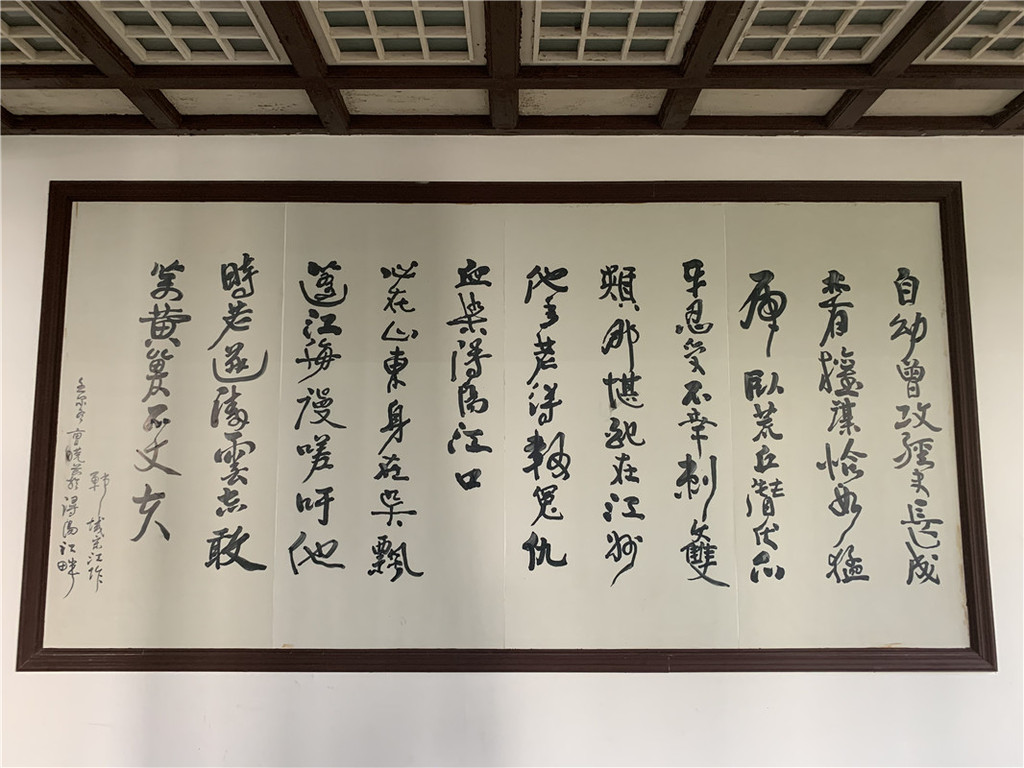 自幼曾攻經史長成
亦有權謀恰如猛
虎臥荒丘潛伏爪
牙忍受不幸刺文雙
頰那堪配在江州
他年若得報冤仇
血染潯陽江口
心在山東身在吳飄
蓬江海謾嗟吁他
時若遂凌雲志敢
笑黃巢不丈夫
鄆城宋江作
潯陽江畔